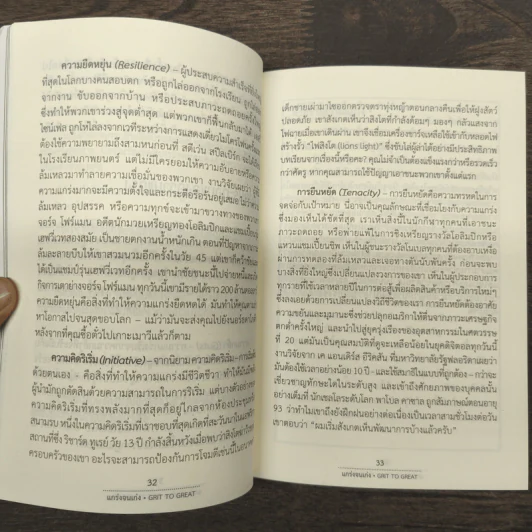 ความยืดหยุ่น (Resilience) – ผู้ประสบความสำเร็จ
ที่สุดในโลกบางคนสอบตก หรือถูกไล่ออกจากโรงเรียน
จากงาน ขับออกจากบ้าน หรือประสบภาวะถดถอย
ซึ่งทำให้พวกเขาร่วงสู่จุดต่ำสุด แต่พวกเขาก็ฟื้นกลับมาได้
ไซน์เฟล ถูกโห่ไล่ลงจากเวทีระหว่างการแสดงเดี่ยวไมโครโฟนครั้ง
ต้องใช้ความพยายามถึงสามหนก่อนที่ สตีเว่น สปีลเบิร์ก จะได้
ในโรงเรียนภาพยนตร์ แต่ไม่มีใครยอมให้ความอับอายหรือ
ล้มเหลวมาทำลายความเชื่อมั่นของพวกเขา งานวิจัยเผยว่า
ความแกร่งมากจะมีความตั้งใจและกระตือรือร้นอยู่เสมอ ไม่ว่า
ล้มเหลว อุปสรรค หรือความทุกข์จะเข้ามาขวางทาง
จอร์จ โฟร์แมน อดีตนักมวยเหรียญทองโอลิมปิกและแชมป์
เฮฟวี่เวทสองสมัย เป็นชายตกงานน้ำหนักเกิน ตอนที่ปัญหา
ล้มละลายบีบให้เขาสวมนวมอีกครั้งในวัย 45 แต่เขาก็คว้า
ได้เป็นแชมป์รุ่นเฮฟวี่เวทอีกครั้ง เขานำชัยชนะนี้ไป
กิจการเตาย่างจอร์จโฟร์แมน ทุกวันนี้เขามีรายได้ราว 200 ล้าน
ความยืดหยุ่นคือสิ่งที่ทำให้ความแกร่งยืดหดได้ มันทำให้คุณ
หาโอกาสไปจนสุดขอบโลก – แม้ว่ามันจะส่งคุณไปยัง
หลังจากที่คุณซื้อตั๋วไปเกาะเมาวีแล้วก็ตาม
ความคิดริเริ่ม (Initiative) – จากนิยาม ความคิดริเริ่ม – การ
ด้วยตนเอง – คือสิ่งที่ทำให้ความแกร่งมีชีวิตชีวา ทำให้
ผู้นำมักถูกตัดสินด้วยความสามารถในการริเริ่ม แต่บางตัวอย่าง
ความคิดริเริ่มที่ทรงพลังมากที่สุดก็อยู่ไกลจากห้องประชุม
สนามรบ หนึ่งในความคิดริเริ่มที่เราชอบที่สุดเกิดที่สะวันนาในแอฟริกา
สถานที่ซึ่ง ริชาร์ด ทูเรย์ วัย 13 ปี กำลังสิ้นหวังเมื่อพบว่าสิงโต
ครอบครัวของเขา อะไรจะสามารถป้องกันการโจมตีเช่นนี้ใน
32
แกร่งจนเก่ง • GRIT TO GREAT
เด็กชายเผ่ามาไซออกตรวจตราทุ่งหญ้าตอนกลางคืนเพื่อให้ฝูงสัตว์
ปลอดภัย เขาสังเกตเห็นว่าสิงโตที่กำลังด้อมๆ มองๆ กลัวแสงจาก
ไฟฉายเมื่อเขาเดินผ่าน เขาจึงเชื่อมเครื่องชาร์จเหลือใช้เข้ากับหลอดไฟ
สร้างรั้ว "ไฟสิงโต (lions light)" ซึ่งขับไล่ผู้ล่าได้อย่างมีประสิทธิภาพ
บทเรียนจากเรื่องนี้หรือคะ? คุณไม่จำเป็นต้องแข็งแรงกว่าหรือรวดเร็ว
กว่าศัตรู หากคุณสามารถใช้ปัญญาเอาชนะพวกเขาตั้งแต่แรก
การยืนหยัด (Tenacity) – การยืนหยัดคือความทรหดในการ
จดจ่อกับเป้าหมาย นี่อาจเป็นคุณลักษณะที่เชื่อมโยงกับความแกร่ง
ซึ่งมองเห็นได้ชัดที่สุด เราเห็นสิ่งนี้ในนักกีฬาทุกคนที่เอาชนะ
ภาวะถดถอย หรือพ่ายแพ้ในการชิงเหรียญรางวัลโอลิมปิกหรือ
แหวนแชมเปี้ยนชิพ เห็นในผู้ชนะรางวัลโนเบลทุกคนที่ต้องอาบเหงื่อ
ผ่านการทดลองที่ล้มเหลวและเจอทางตันนับพันครั้ง ก่อนจะพบ
บางสิ่งที่ยิ่งใหญ่ซึ่งเปลี่ยนแปลงวงการของเขา เห็นในผู้ประกอบการ
ทุกรายที่ใช้เวลาหลายปีในการต่อสู้เพื่อผลิตสินค้าหรือบริการใหม่ๆ
ซึ่งลงเอยด้วยการเปลี่ยนแปลงวิถีชีวิตของเรา การยืนหยัดต้องอาศัย
ความขยันและมุมานะซึ่งช่วยปลุกอเมริกาให้ตื่นจากภาวะเศรษฐกิจ
ตกต่ำครั้งใหญ่ และนำไปสู่ยุครุ่งเรืองของอุตสาหกรรมในศตวรรษ
ที่ 20 แต่มันเป็นคุณสมบัติที่ดูจะเหลือน้อยในยุคดิจิตอลทุกวันนี้
งานวิจัยจาก เค แอนเดิร์ส อีริคสัน ที่มหาวิทยาลัยรัฐฟลอริดาเผยว่า
มันต้องใช้เวลาอย่างน้อย 10 ปี – และใช้สมาธิในแบบที่ถูกต้อง – กว่าจะ
เชี่ยวชาญทักษะใดในระดับสูง และเข้าถึงศักยภาพของบุคคลนั้น
อย่างเต็มที่ นักเชลโลระดับโลก พาโบล คาซาล ถูกสัมภาษณ์ตอนอายุ
93 ว่าทำไมเขาถึงยังฝึกฝนอย่างต่อเนื่องเป็นเวลาสามชั่วโมงต่อวัน
เขาตอบว่า "ผมเริ่มสังเกตเห็นพัฒนาการบ้างแล้วครับ"
33
แกร่งจนเก่ง • GRIT TO GREAT